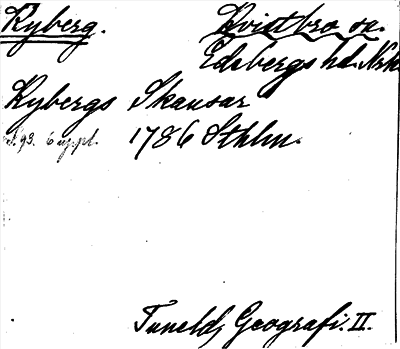 Ryberg. Kvistbro sn.
Edsbergs hd. Nrk
Rybergs Skansar
s. 93. 6 uppl. 1786 Sthlm.
Tunelds Geografi. II.